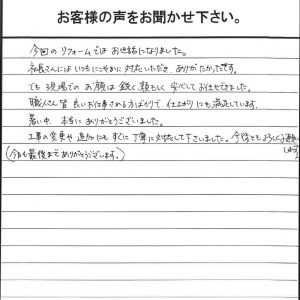 お客様の声をお聞かせ下さい。
今回のリフォームではお世話になりました。
社長さんにはいつもにこやかに対応いただき、ありがたかったです。
でも現場でのお顔は鋭く頼もしく安心してお任せできました。
職人さん皆良いお仕事される方ばかりで、仕上がりにも満足しています。
暑い中、本当にありがとうございました。
工事の変更や追加にもすぐに丁寧に対応して下さいました。今後ともよろしくお願いします。
(今回も最後までありがとうございます。)